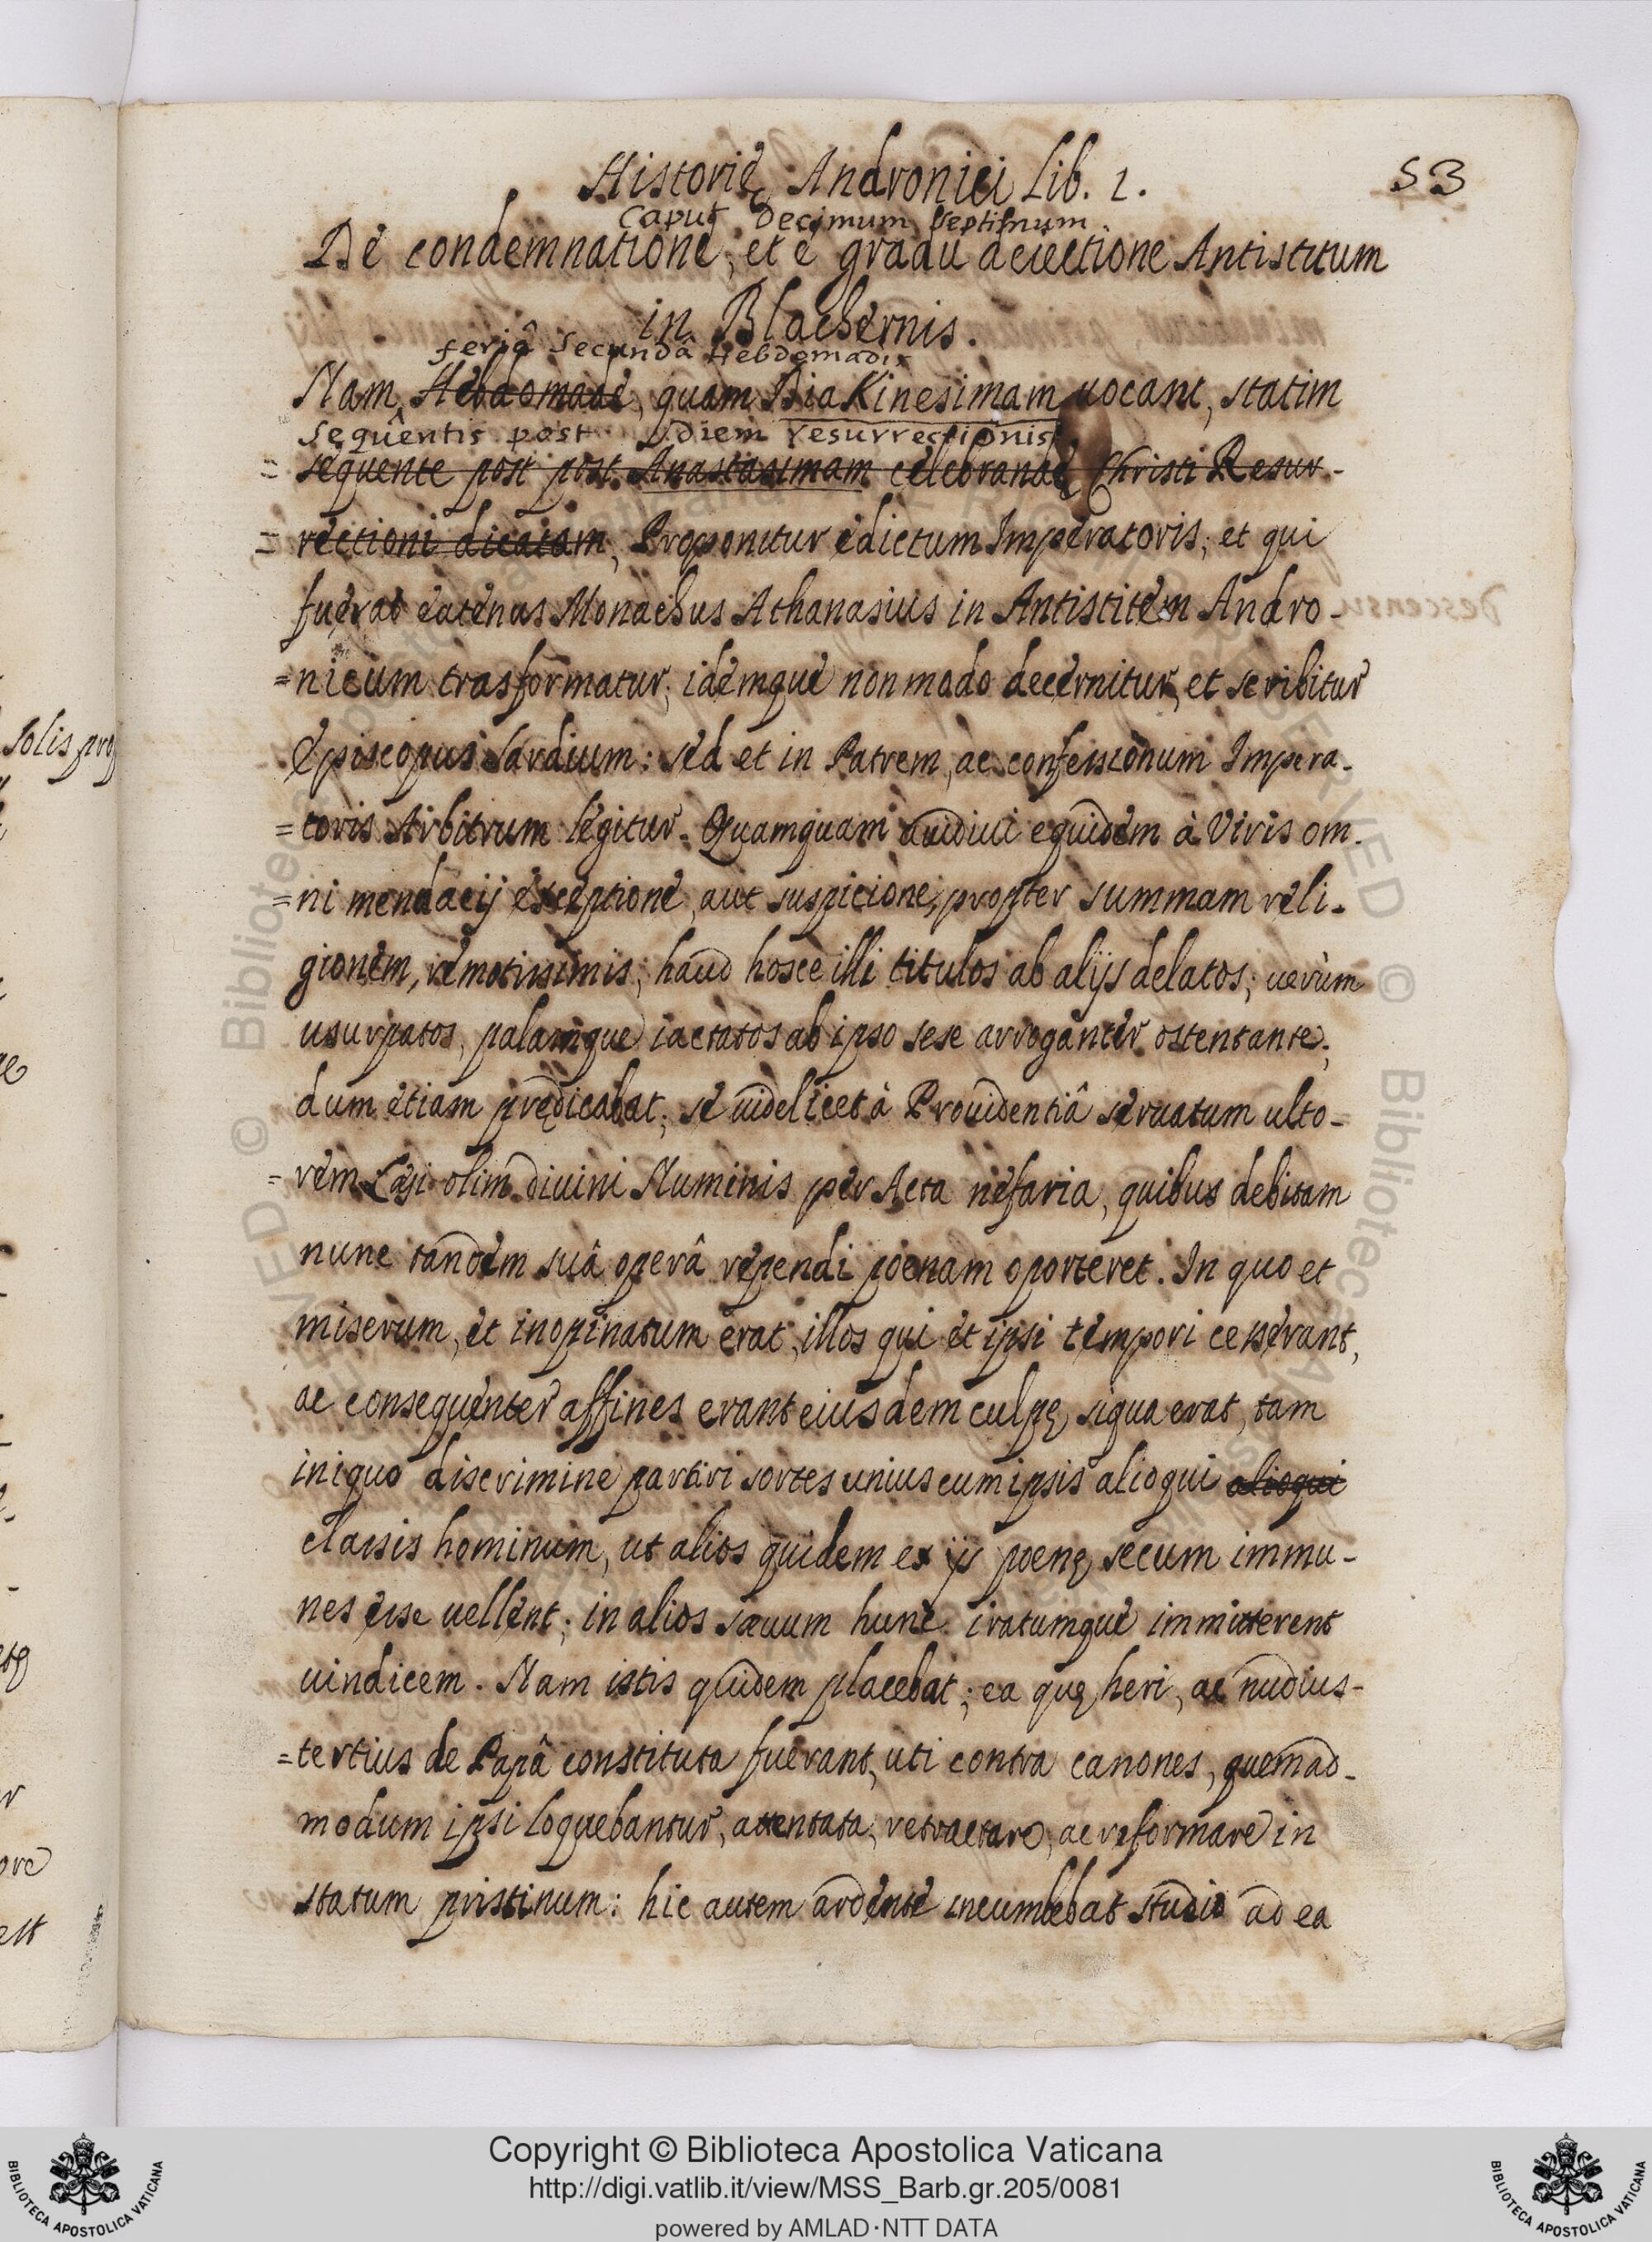 Historię Andronici Lib. 1.
53
Caput Decimum Septimum
De condemnatione, et è gradu deiectione Antistitum
in Blachernis.
feriâ Secundâ Hebdomadis
Nam Hebdomade, quam DiaKinesimam uocant, statim
sequentis post diem resurrectionis
= sequente post post Anastasimam celebrandę Christi Resur-
= rectioni dicatam, Proponitur edictum Imperatoris; et qui
fuerat eatenus Monachus Athanasius in Antistitem Andro-
=nicum trasformatur; idemque non modo decernitur, et scribitur
Episcopus Sardium: sed et in Patrem, ac confessionum Impera-
=toris Arbitrum legitur. Quamquam audiui equidem à Viris om-
=ni mendacij exceptione, aut suspicione, propter summam reli-
gionem, remotissimis; haud hosce illi titulos ab alijs delatos; uerùm
usurpatos, palamque iactatos ab ipso sese arroganter ostentante;
dum etiam prędicabat; se uidelicet à Prouidentiâ seruatum ulto-
=rem Lęsi olim diuini Numinis per Acta nefaria, quibus debitam
nunc tandem suâ operâ rependi poenam oporteret. In quo et
miserum, et inopinatum erat, illos qui et ipsi tempori cesserant,
ac consequenter affines erant eiusdem culpę, siqua erat, tam
iniquo discrimine partiri sortes unius cum ipsis alioqui alioqui
classis hominum, ut alios quidem ex ijs poenę secum immu-
nes esse uellent; in alios sæuum hunc iratumque immitterent
uindicem. Nam istis quidem placebat; ea quę heri, ac nudius-
=tertius de Papâ constituta fuerant, uti contra canones, quemad-
modum ipsi loquebantur, attentata, retractare, ac reformare in
statum pristinum: hic autem ardente incumbebat studio ad ea
Descensu
solis prog
ore
est
Copyright © Biblioteca Apostolica Vaticana
http://digi.vatlib.it/view/MSS_Barb.gr.205/0081
powered by AMLAD·NTT DATA
BIBLIOTECA APOSTOLICA VATICANA
BIBLIOTECA APOSTOLICA VATICANA